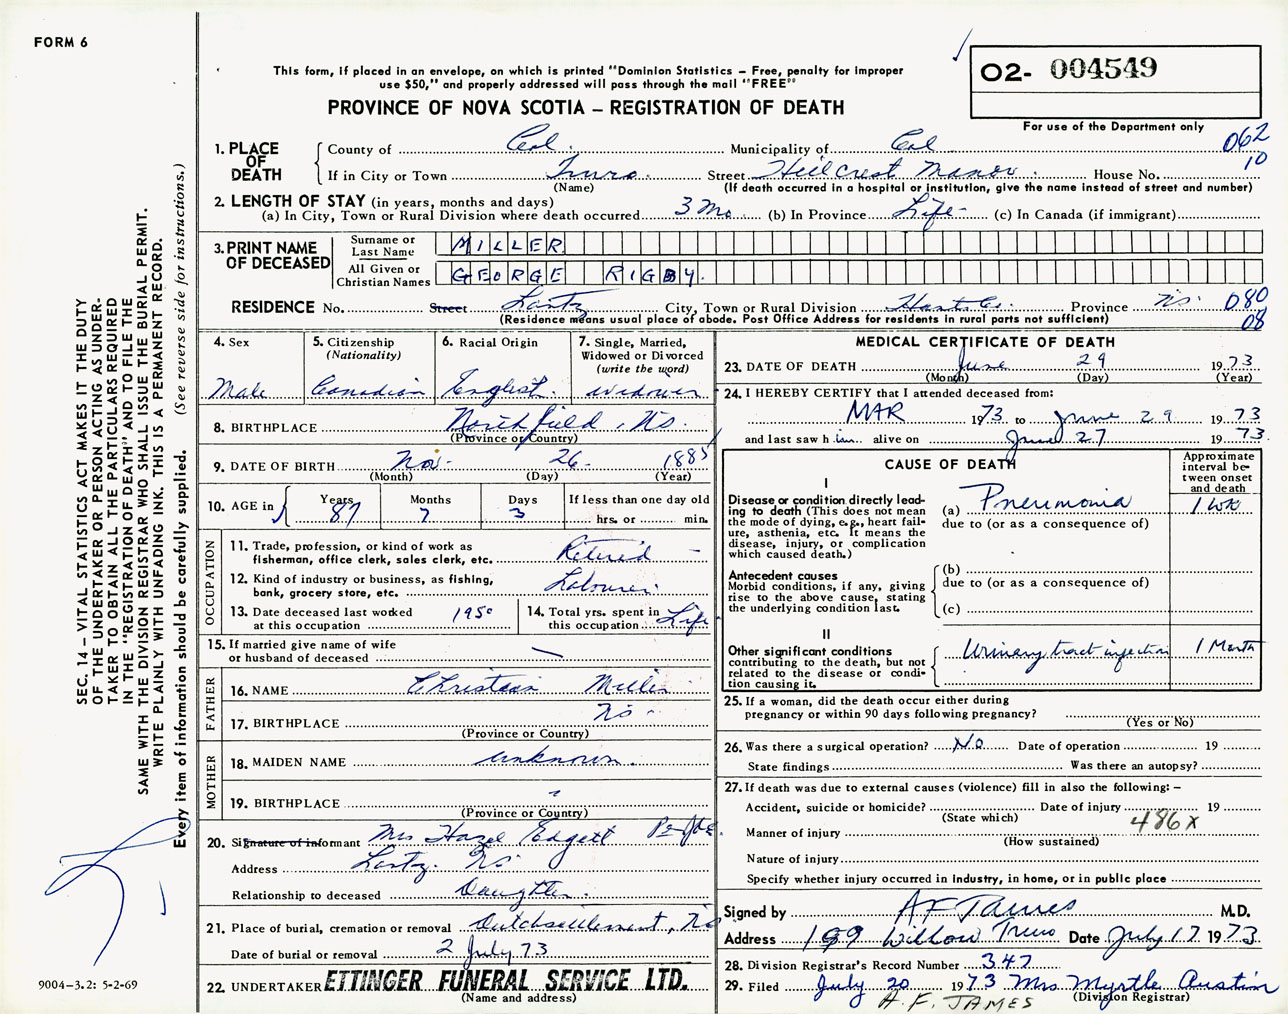 FORM 6
This form, if placed in an envelope, on which is printed "Dominion Statistics – Free, penalty for improper
use $50," and properly addressed will pass through the mail "FREE"
PROVINCE OF NOVA SCOTIA – REGISTRATION OF DEATH
02- 004549
For use of the Department only
062
10
1. PLACE OF DEATH
County of Col. Municipality of Col
If in City or Town Truro. Street Hillcrest Manor. House No.
(Name) (If death occurred in a hospital or institution, give the name instead of street and number)
2. LENGTH OF STAY (in years, months and days)
(a) In City, Town or Rural Division where death occurred 3 Mo (b) In Province Life- (c) In Canada (if immigrant)
3. PRINT NAME OF DECEASED
Surname or Last Name MILLER
All Given or Christian Names GEORGE RIGBY.
RESIDENCE No. Street Lantz City, Town or Rural Division Hants Co. Province N.S. 080
(Residence means usual place of abode. Post Office Address for residents in rural parts not sufficient) 08
4. Sex
Male
5. Citizenship
(Nationality)
Canadian
6. Racial Origin
English
7. Single, Married,
Widowed or Divorced
(write the word)
Widower
8. BIRTHPLACE Northfield, N.S.
(Province or Country)
9. DATE OF BIRTH Nov. 26- 1885
(Month) (Day) (Year)
10. AGE in
Years Months Days If less than one day old
87 7 3 hrs. or min.
OCCUPATION
11. Trade, profession, or kind of work as
fisherman, office clerk, sales clerk, etc. Retired -
12. Kind of industry or business, as fishing,
bank, grocery store, etc. Labourer.
13. Date deceased last worked
at this occupation 1950
14. Total yrs. spent in
this occupation Life
15. If married give name of wife
or husband of deceased —
FATHER
16. NAME Christian Miller
17. BIRTHPLACE N.S.
(Province or Country)
MOTHER
18. MAIDEN NAME unknown.
19. BIRTHPLACE
(Province or Country)
20. Signature of informant Mrs Hazel Edgett
Address Lantz. N.S.
Relationship to deceased Daughter.
21. Place of burial, cremation or removal Dutchsettlement, N.S.
Date of burial or removal 2 July 73
22. UNDERTAKER ETTINGER FUNERAL SERVICE LTD.
(Name and address)
MEDICAL CERTIFICATE OF DEATH
23. DATE OF DEATH June 29 1973
(Month) (Day) (Year)
24. I HEREBY CERTIFY that I attended deceased from:
MAR 1973 to June 29 1973
and last saw him alive on June 27 1973
CAUSE OF DEATH
Approximate
interval be-
tween onset
and death
I
Disease or condition directly lead-
ing to death (This does not mean
the mode of dying, e.g., heart fail-
ure, asthenia, etc. It means the
disease, injury, or complication
which caused death.)
(a) Pneumonia 1 wk
due to (or as a consequence of)
Antecedent causes
Morbid conditions, if any, giving
rise to the above cause, stating
the underlying condition last.
(b)
due to (or as a consequence of)
(c)
II
Other significant conditions
contributing to the death, but not
related to the disease or condi-
tion causing it.
Urinary tract infection 1 Month
25. If a woman, did the death occur either during
pregnancy or within 90 days following pregnancy?
(Yes or No)
26. Was there a surgical operation? No Date of operation 19
State findings Was there an autopsy?
27. If death was due to external causes (violence) fill in also the following: –
Accident, suicide or homicide? Date of injury 19
(State which) 486X
Manner of injury
(How sustained)
Nature of injury
Specify whether injury occurred in industry, in home, or in public place
Signed by AF James M.D.
Address 199 Willow Truro Date July 17 1973
28. Division Registrar's Record Number 347
29. Filed July 20 1973 Mrs Myrtle Austin
A.F. JAMES (Division Registrar)
SEC. 14 – VITAL STATISTICS ACT MAKES IT THE DUTY
OF THE UNDERTAKER OR PERSON ACTING AS UNDER-
TAKER TO OBTAIN ALL THE PARTICULARS REQUIRED
IN THE "REGISTRATION OF DEATH" AND TO FILE THE
SAME WITH THE DIVISION REGISTRAR WHO SHALL ISSUE THE BURIAL PERMIT.
WRITE PLAINLY WITH UNFADING INK. THIS IS A PERMANENT RECORD.
Every item of information should be carefully supplied. (See reverse side for instructions.)
9004-3.2: 5-2-69